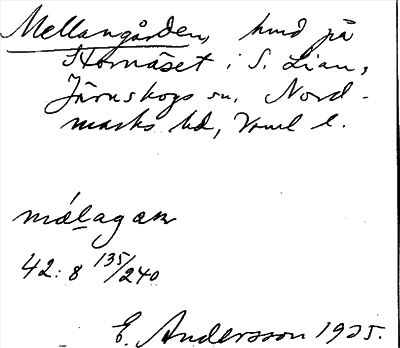 Mellangården, hmd på
Stornäset i S. Lian,
Järnskogs sn, Nord-
marks hd, Vrml l.
målagan
42: 8 135/240
E. Andersson 1925.